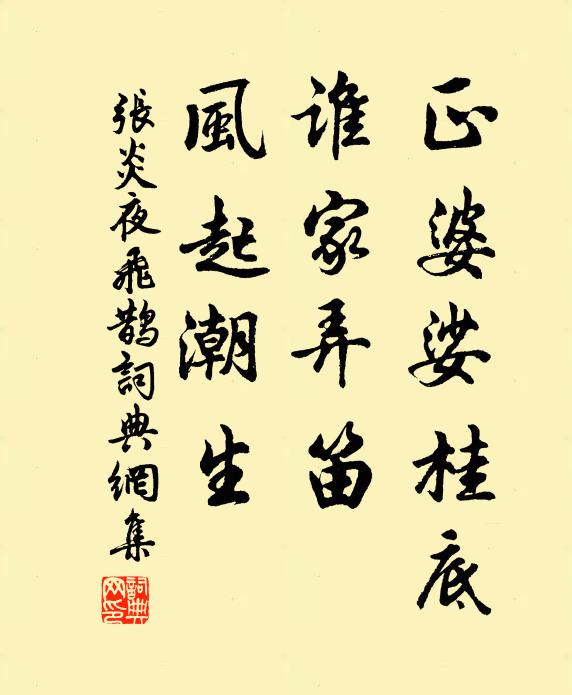 正婆娑桂底
誰家弄笛
風起潮生
張炎夜飛鵲詞典網集
詞典网印